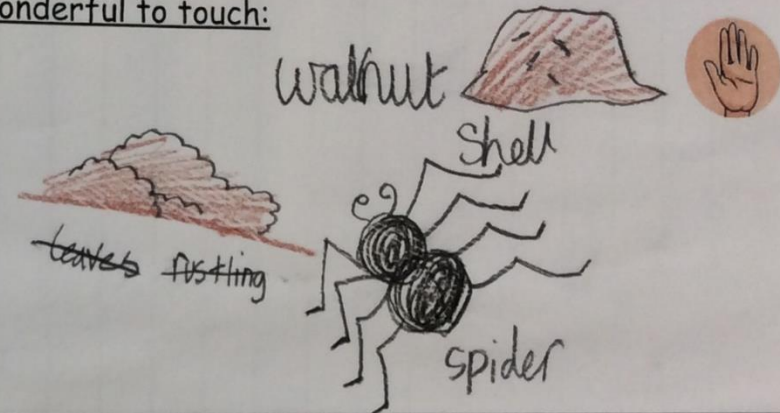 onderful to touch:
walnut
shell
leaves rustling
spider